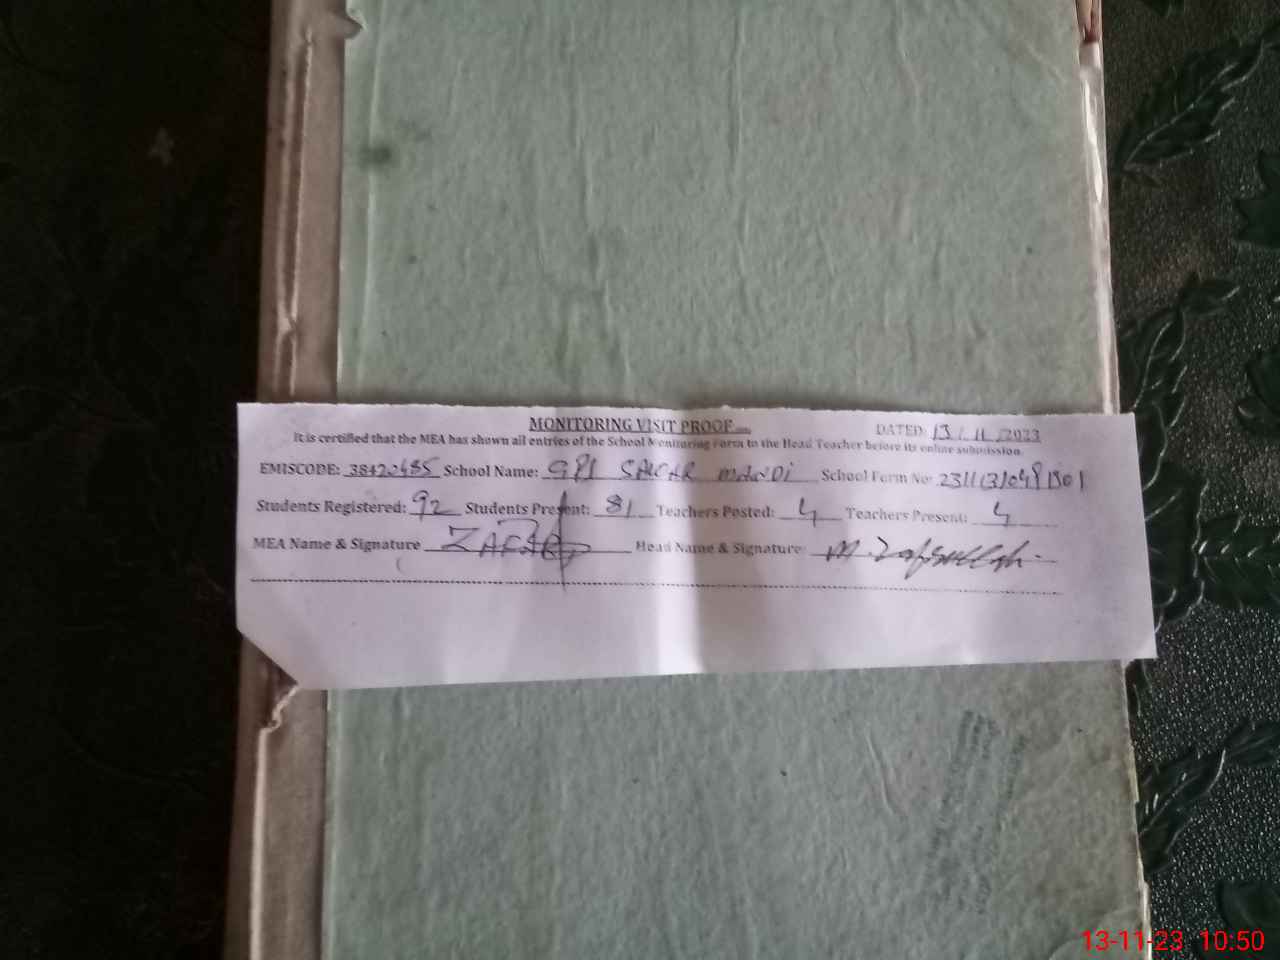 MONITORING VISIT PROOF
DATED: 13/11/2023
It is certified that the MEA has shown all entries of the School Monitoring Form to the Head Teacher before its online submission.
EMISCODE: 38420485 School Name: GPS SALGAR MANDI School Form No:
Students Registered: 92 Students Present: 81 Teachers Posted: 4 Teachers Present: 4
MEA Name & Signature ZAFAR Head Name & Signature: M. Zafarullah
13-11-23 10:50